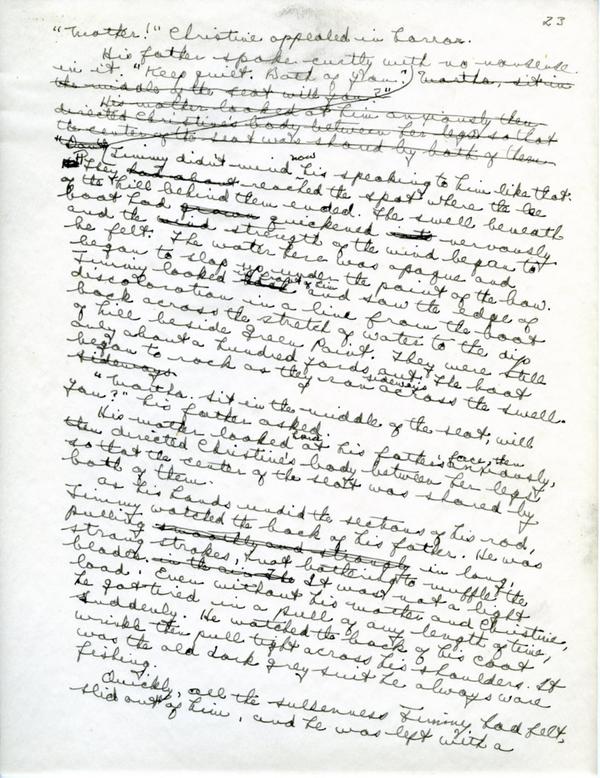 23
"Mother!" Christine appealed in horror.
His father spoke curtly with no nonsense
in it. "Keep quiet. Both of you." Martha, sit in
the middle of the seat will you?"
His mother looked at him anxiously then
directed Christine's body between her legs so that
the center of the seat was shared by both of them.
Jimmy didn't mind now his speaking to him like that.
They had about reached the spot where the lee
of the hill behind them ended. The swell beneath
boat had quickened nervously
and the wind strength of the wind began to
be felt. The water here was opaque and
began to slap up under the point of the bow.
Jimmy looked in front of him and saw the edge of
discoloration in a line from the boat
back across the stretch of water to the dip
of hill beside Green Point. They were still
only about a hundred yards out. The boat
began to rock as they ran sideways across the swell.
sideways
"Martha. Sit in the middle of the seat, will
you?" his father asked.
His mother looked at his father's face anxiously, then
then directed Christine's body between her legs
so that the center of the seat was shared by
both of them.
As his hands undid the sections of his rod,
Jimmy watched the back of his father. He was
pulling smoothly and strongly in long,
strong strokes, not bothering to muffle the
blades. It was not a light
load. Even without his mother and Christine,
he got tired in a pull of any length of time,
suddenly. He watched the back of his coat
wrinkle then pull tight across his shoulders. It
was the old dark grey suit he always wore
fishing.
Quickly, all the sullenness Jimmy had felt,
slid out of him, and he was left with a